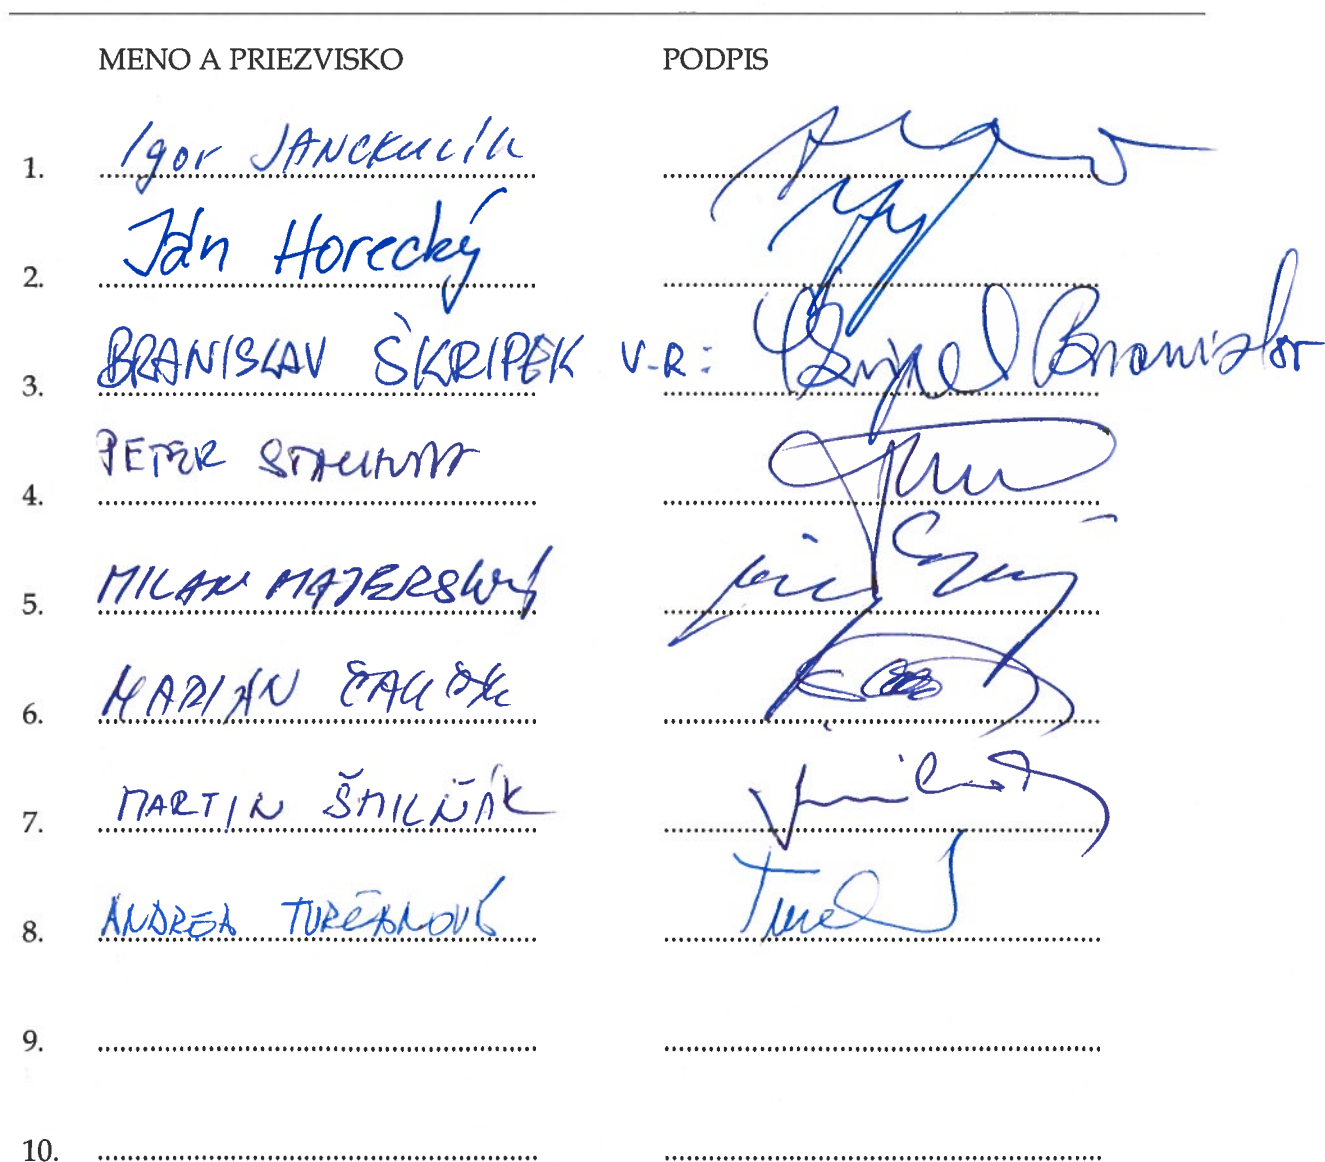 MENO A PRIEZVISKO PODPIS
1. Igor JANCKULÍK
2. Ján Horecký
3. BRANISLAV ŠKRIPEK V.R: Škripek Branislav
4. PETER STACHURA
5. MILAN MAJERSKÝ
6. MARIÁN ČAUČÍK
7. MARTIN ŠMILŇÁK
8. ANDREA TURČANOVÁ
9.
10.